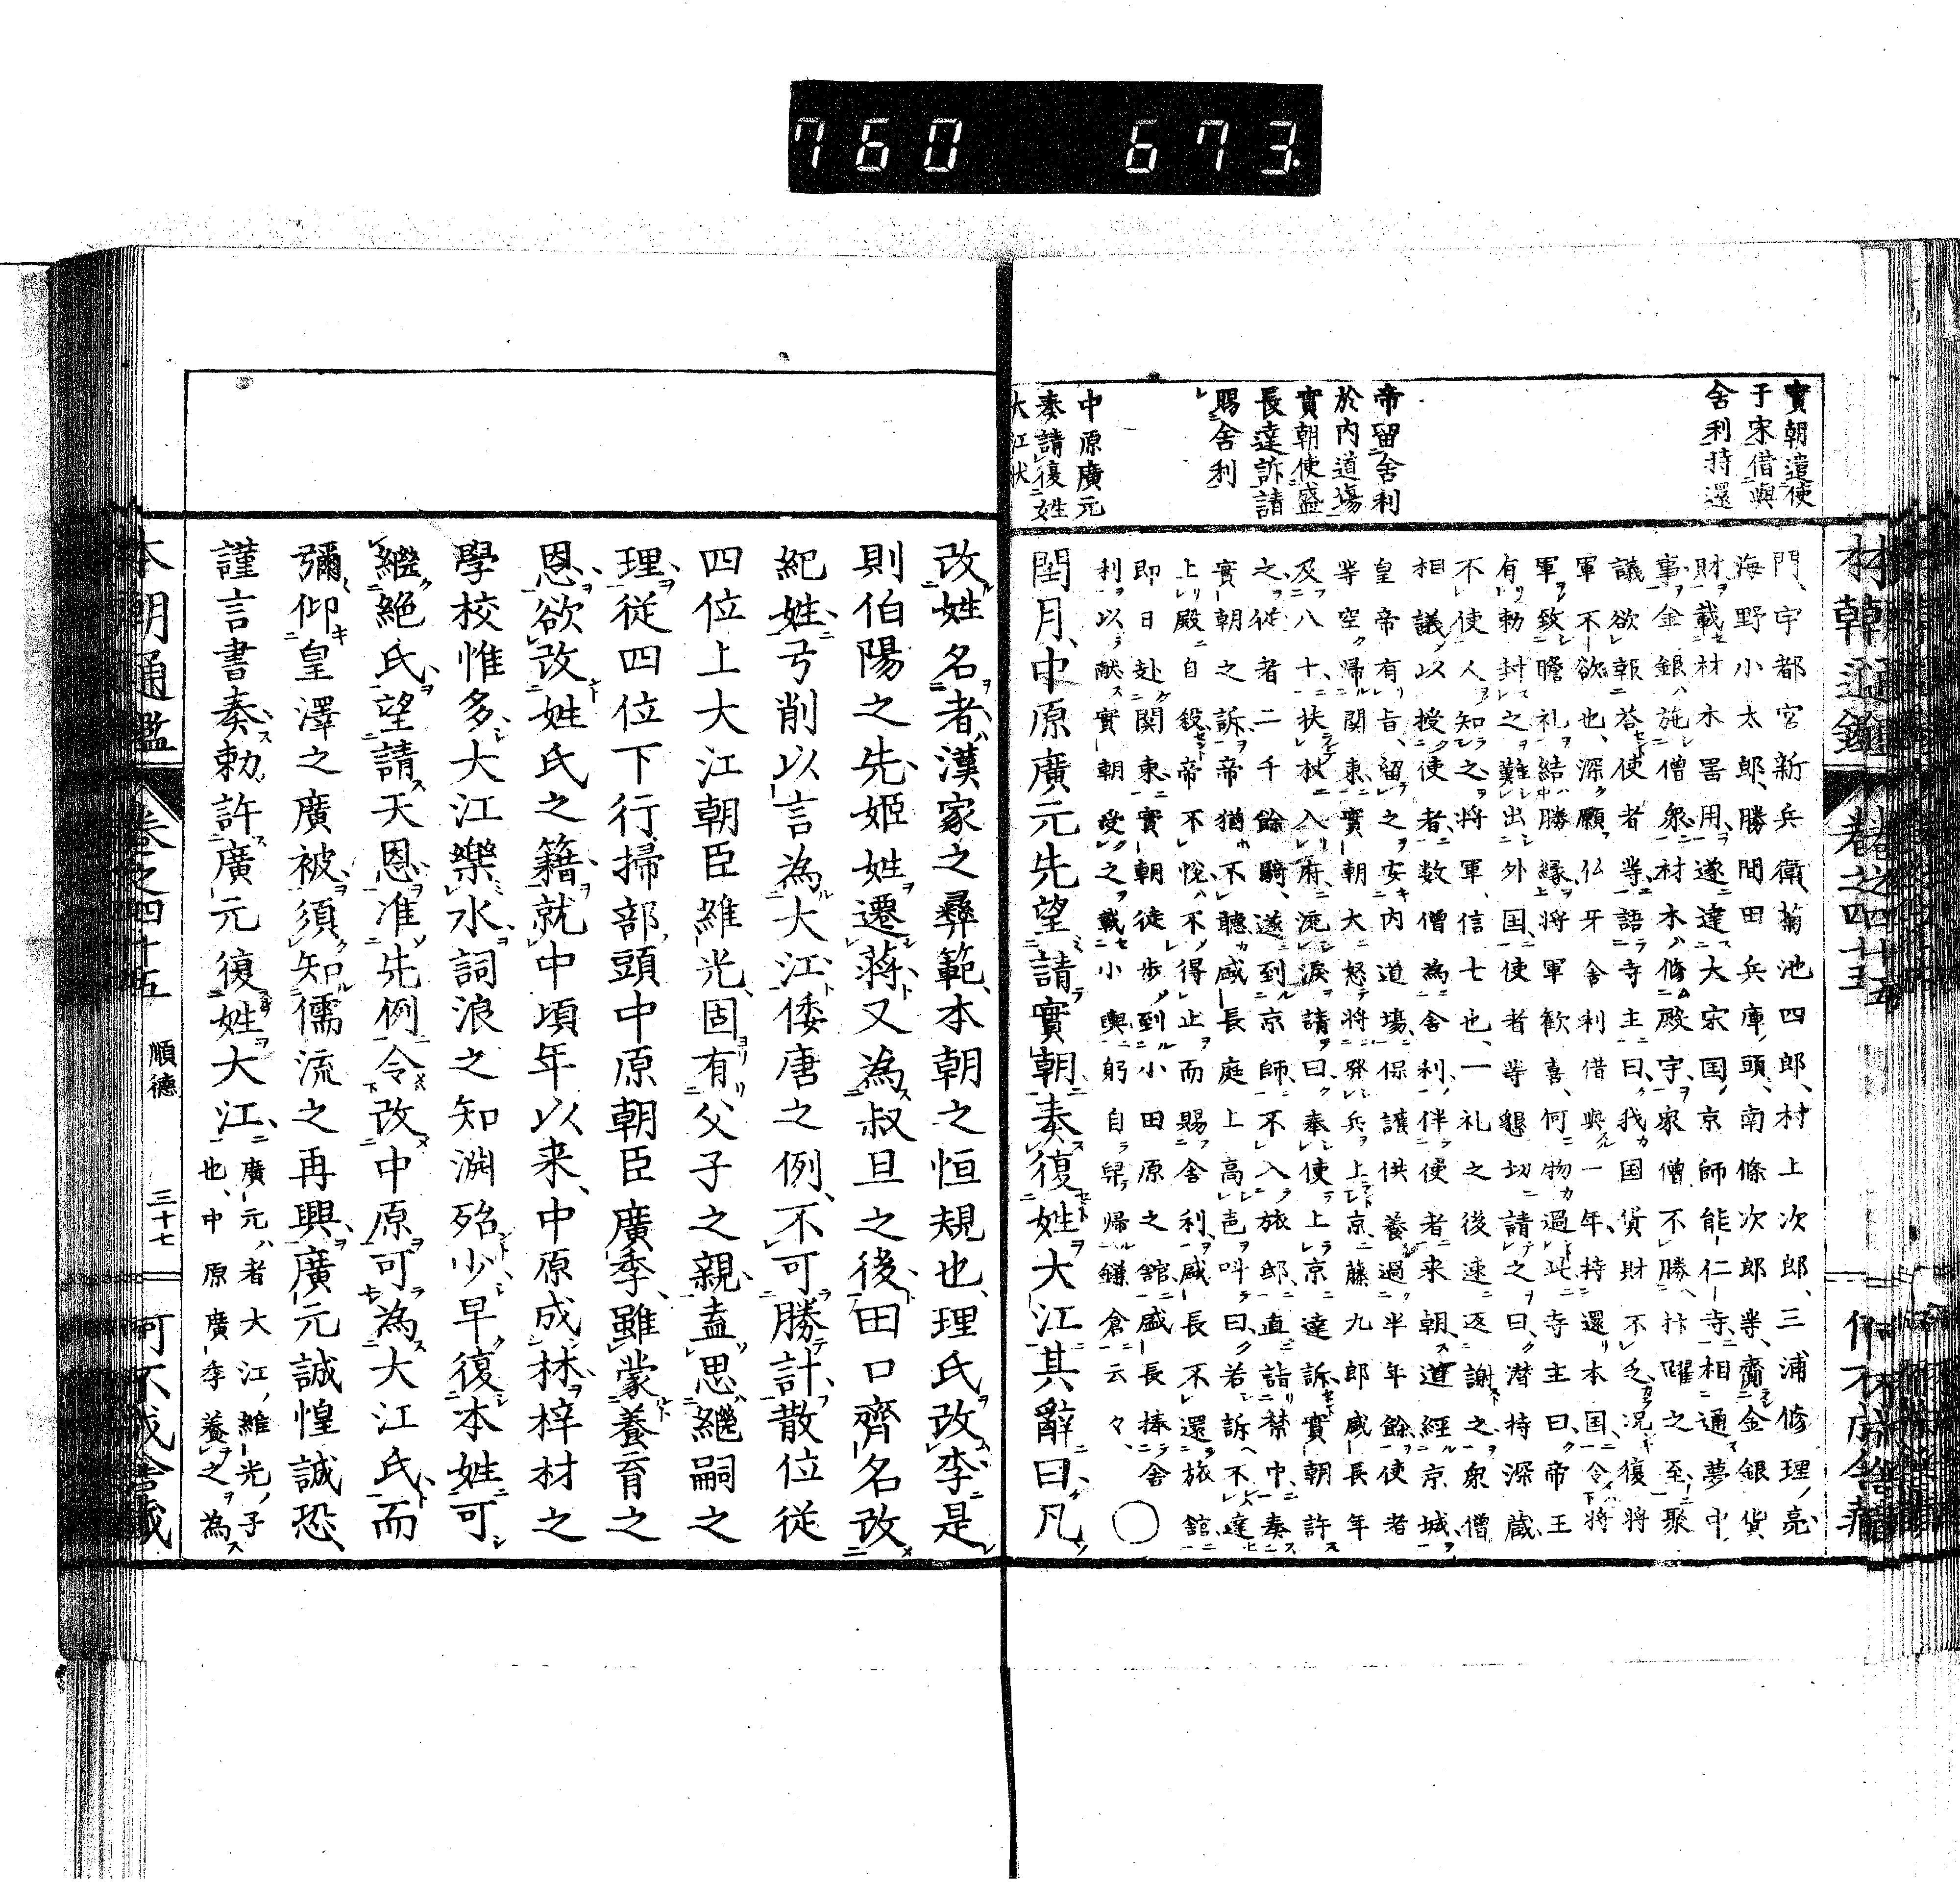 760 673
實朝遣使
于宋借與
舍利持還
帝留舍利
於内道場
實朝使盛
長達訴請
賜舍利
中原廣元
奏請復姓
大江状
門、宇都宮新兵衛、菊池四郎、村上次郎、三浦修理亮、
海野小太郎、勝間田兵庫頭、南條次郎等、齎金銀貨
財、載材木器用、遂達大宋国、京師能仁寺、相通夢中
事、金銀施僧衆、材木修殿宇、衆僧不勝抃躍之至、聚
議欲報荅使者等、語寺主曰、我国貨財不乏、况復將
軍不欲也、深願仏牙舍利借與一年、持還本国、令將
軍致瞻礼結勝縁、將軍歓喜、何物過此、寺主曰、帝王
有勅封之、難出外国、使者等懇切請之曰、潜持深蔵、
不使人知之、將軍信七也、一礼之後速返謝之、衆僧
相議、以授使者、数僧為舍利伴使者来朝、道經京城、
皇帝有旨、留之安内道場、保護供養、過半年餘、使者
等空歸関東、實朝大怒、將発兵上京、藤九郎盛長年
及八十、扶杖入府、流涙請曰、奉使上京達訴、實朝許
之、従者二千餘騎、遂到京師、不入旅邸、直詣禁中、奏
實朝之訴、帝猶不聴、盛長庭上高声叫曰、若訴不達、
上殿自殺、帝不悦、不得止而賜舍利、盛長不還旅館、
即日赴関東、實朝徒歩到小田原之館、盛長捧舍
利以献實朝、受之、載小輿、躬自舁歸鎌倉云々、○
閏月、中原廣元先望請實朝奏復姓大江其辭曰凡
改姓名者、漢家之彝範、本朝之恒規也、理氏改李、是
則伯陽之先、姫姓遷蒋、又為叔旦之後、田口齊名改
紀姓、弓削以言為大江、倭唐之例、不可勝計、散位従
四位上大江朝臣維光、固有父子之親、盍思繼嗣之
理、従四位下行掃部頭中原朝臣廣季、雖蒙養育之
恩、欲改姓氏之籍、就中頃年以来、中原成林梓材之
學校惟多、大江樂水詞浪之知渊殆少、早復本姓、可
繼絶氏、望請天恩、准先例、令改中原可為大江氏、而
彌仰皇澤之廣被、須知儒流之再興、廣元誠惶誠恐、
謹言書奏、勅許廣元復姓大江、廣元者大江維光子
也、中原廣季養之為
本朝通鑑
卷之四十五
順德
三十七